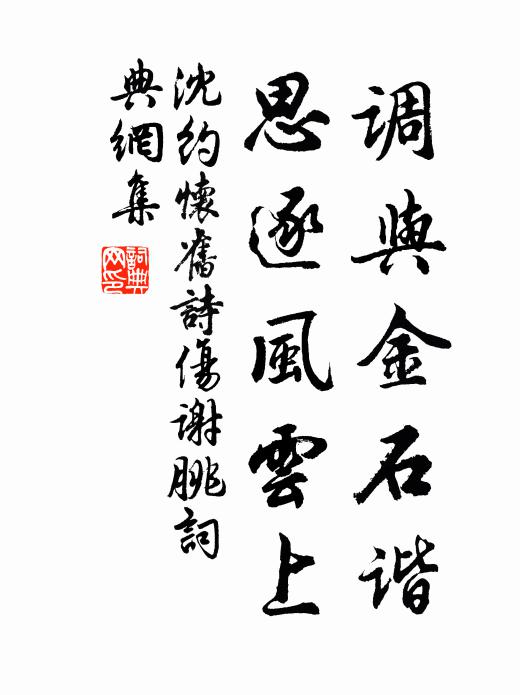 调與金石谐
思逐風雲上
沈約懷舊詩傷謝朓詞
典網集
詞典网印